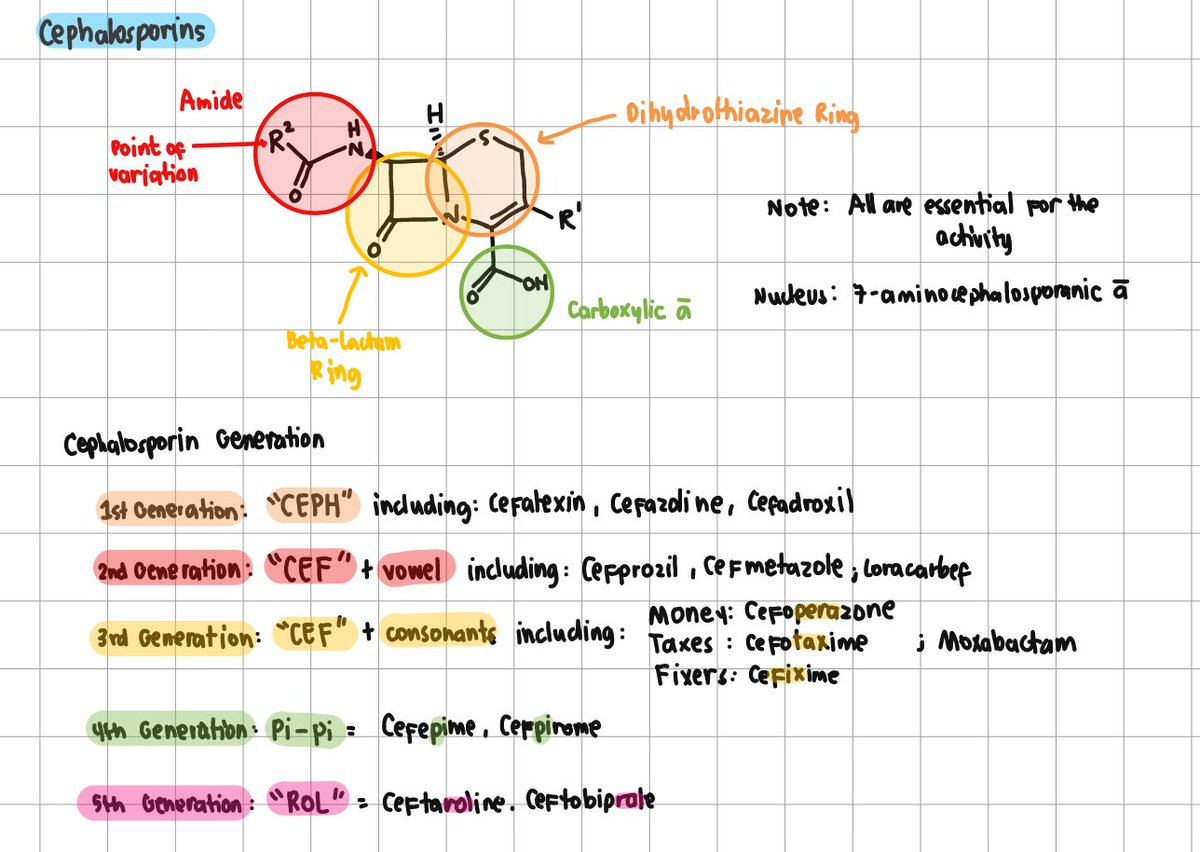 Cephalosporins
Amide
Point of
variation
R²
H
N
O
H
S
Dihydrothiazine Ring
N
R'
O
O
OH
Carboxylic ā
Beta-Lactam
Ring
Note: All are essential for the
activity
Nucleus: 7-aminocephalosporanic ā
Cephalosporin Generation
1st Generation: "CEPH" including: Cefalexin, Cefazoline, Cefadroxil
2nd Generation: "CEF" + vowel including: Cefprozil, Cefmetazole; Loracarbef
3rd Generation: "CEF" + consonants including:
Money: Cefoperazone
Taxes: Cefotaxime ; Moxabactam
Fixers: Cefixime
4th Generation: Pi-pi = Cefepime, Cefpirome
5th Generation: "ROL" = Ceftaroline. Ceftobiprole